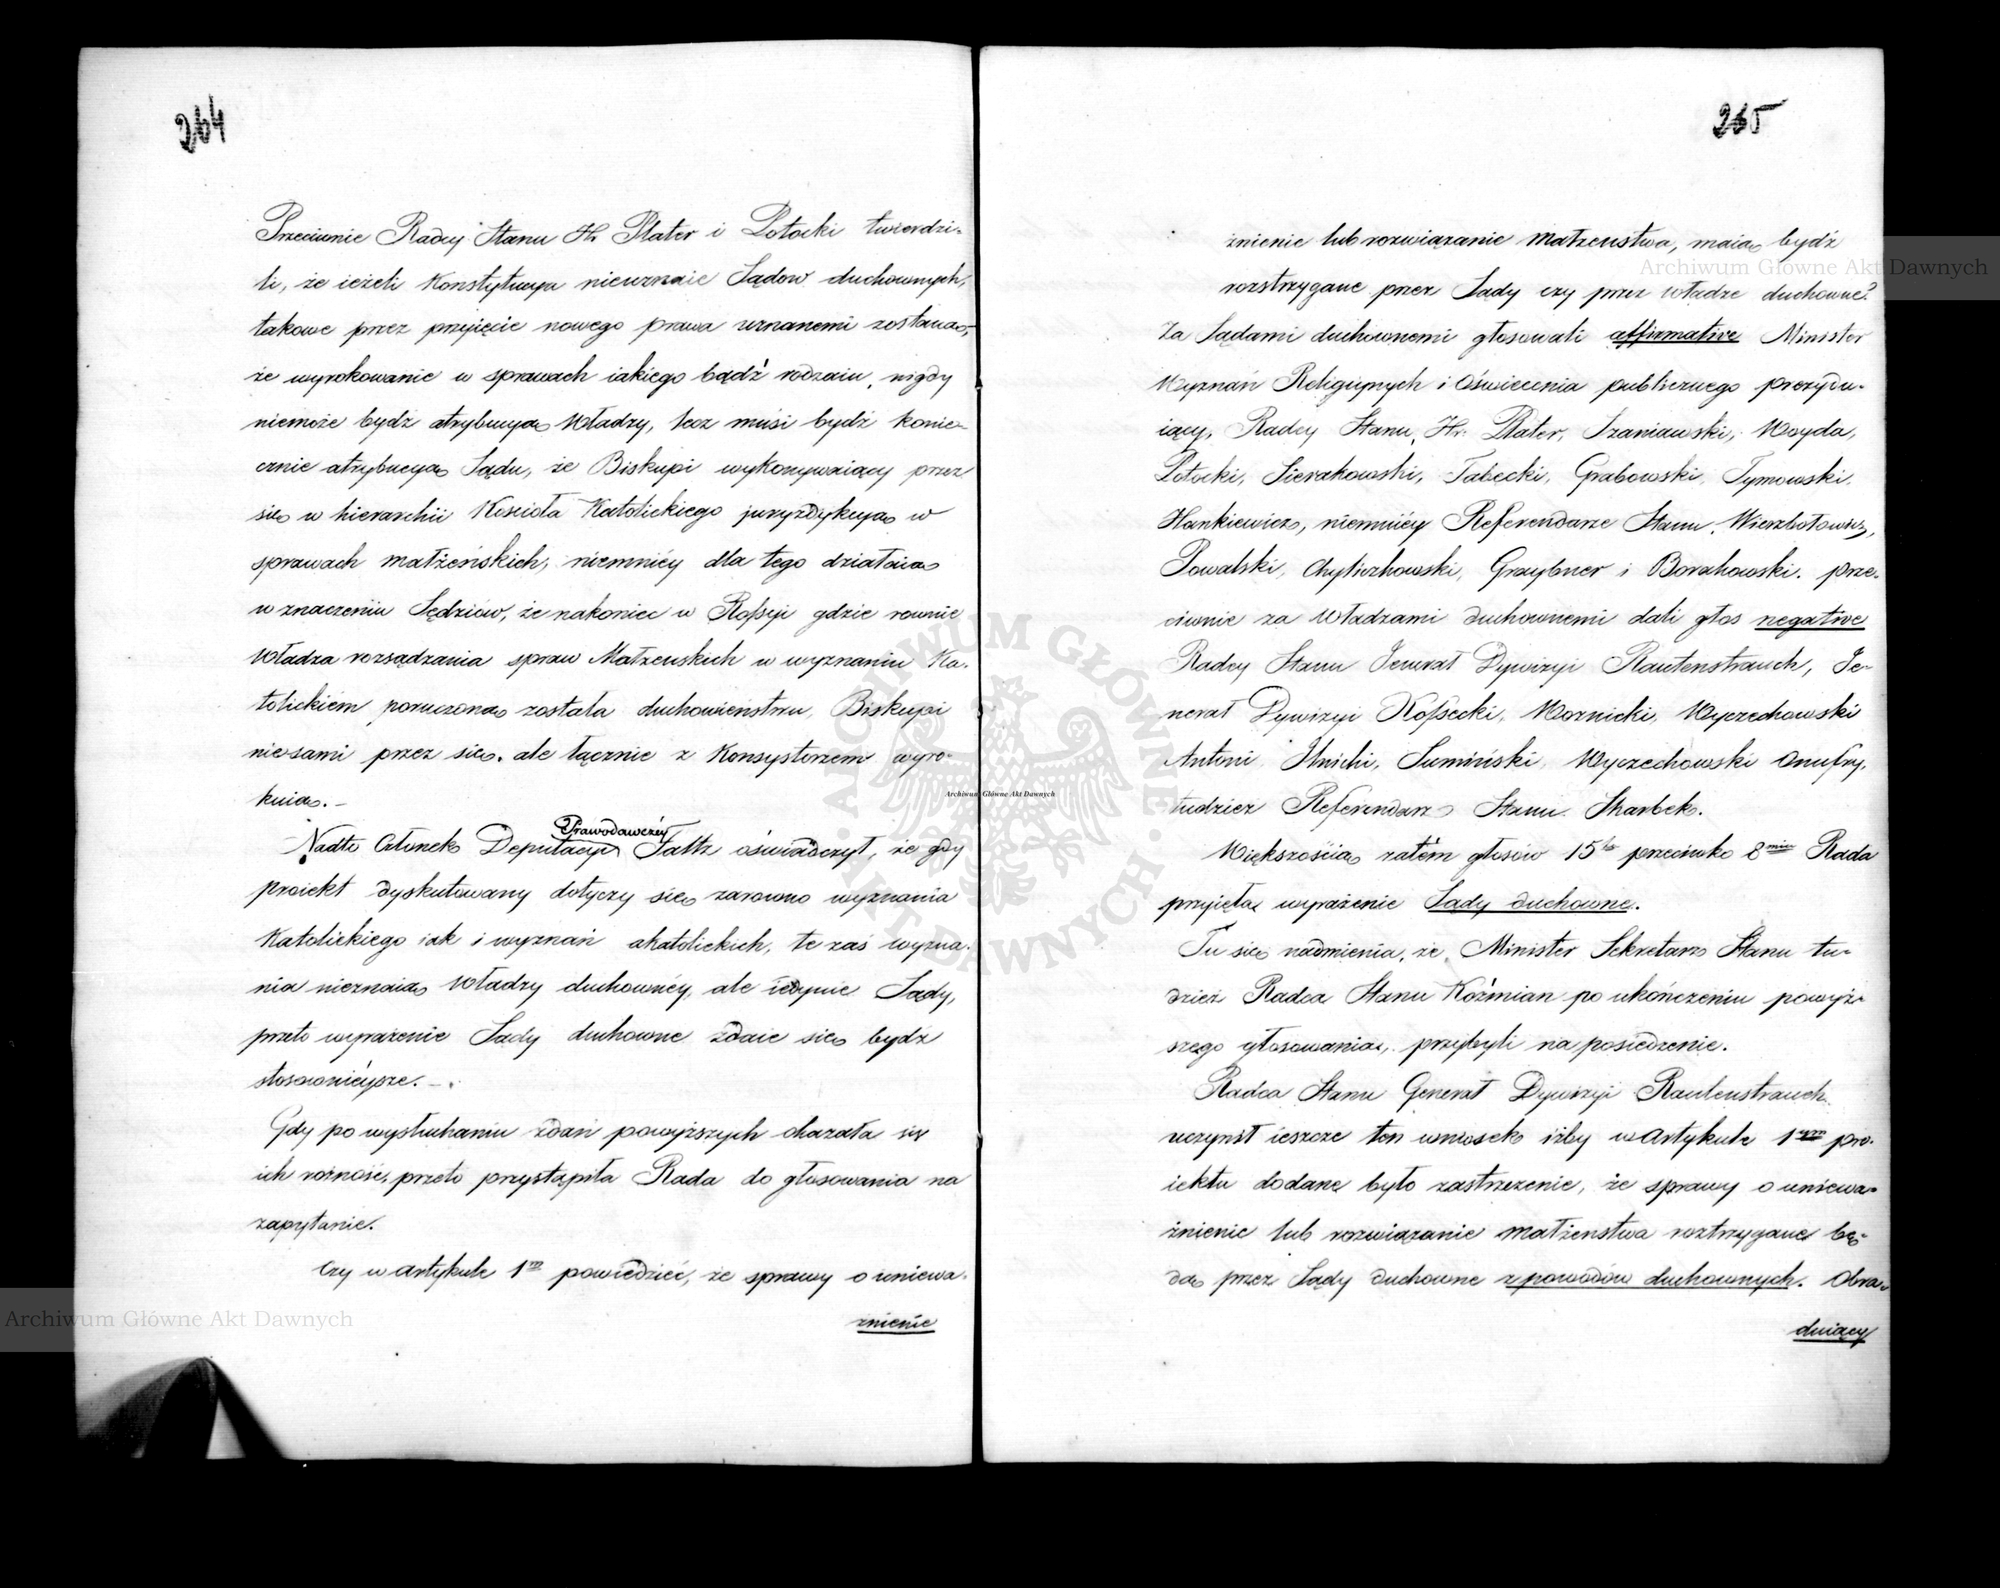 264
Przeciwnie Radcy Stanu Hr. Plater i Potocki twierdzi-
li, że ieżeli Konstytucya nieuznaie Sądow duchownych,
takowe przez przyięcie nowego prawa uznanemi zostaną,
że wyrokowanie w sprawach iakiego bądź rodzaiu, nigdy
niemoże bydź atrybucyą Władzy, lecz musi bydź konie-
cznie atrybucyą Sądu, że Biskupi wykonywaiący przez
się w hierarchii Kościoła Katolickiego juryzdykcyą w
sprawach małżeńskich, niemniéy dla tego działaią
w znaczeniu Sędziów, że nakoniec w Rossyi gdzie rownie
Władza rozsądzania spraw Małżenskich w wyznaniu Ka-
tolickiem poruczoną została duchowieństwu, Biskupi
niesami przez się, ale łącznie z Konsystorzem wyro-
kuią. —
Nadto Członek Deputacyi Prawodawczéy Faltz oświadczył, że gdy
proiekt dyskutowany dotyczy się zarowno wyznania
Katolickiego iak i wyznań akatolickich, te zaś wyzna-
nia nieznaią Władzy duchownéy, ale iedynie Sądy,
przeto wyrażenie Sądy duchowne zdaie się bydź
stosownieysze. —
Gdy po wysłuchaniu zdań powyższych okazała się
ich rożność, przeto przystąpiła Rada do głosowania na
zapytanie.
Czy w Artykule 1m powiedzieć, że sprawy o uniewa-
żnienie
265
żnienie lub rozwiązanie Małzenstwa, maią bydź
rozstrzygane przez Sądy czy przez Władze duchowne?
Za Sądami duchownemi głosowali affirmative Minister
Wyznań Religiynych i Oświecenia publicznego prezydu-
iący, Radcy Stanu, Hr. Plater, Szaniawski, Woyda,
Potocki, Sierakowski, Fabecki, Grabowski, Tymowski,
Hankiewicz, niemniéy Referendarze Stanu, Wierzbołowicz,
Powalski, Chyliczkowski, Graybner i Borakowski. prze-
ciwnie za Władzami duchownemi dali głos negative
Radcy Stanu Jenerał Dywizyi Rautenstrauch, Je-
nerał Dywizyi Kossecki, Woznicki, Wyczechowski
Antoni, Hnicki, Sumiński, Wyczechowski Onufry,
tudziez Referendarz Stanu Skarbek.
Większością zatém głosów 15tu przeciwko 8miu Rada
przyięła wyrażenie Sądy duchowne.
Tu się nadmienia, że Minister Sekretarz Stanu tu-
dzież Radca Stanu Koźmian po ukończeniu powyż-
szego głosowania, przybyli na posiedzenie.
Radca Stanu Generał Dywizyi Rautenstrauch
uczynił ieszcze ten wniosek iżby w Artykule 1ym pro-
iektu dodane było zastrzezenie, że sprawy o uniewa-
żnienie lub rozwiązanie Małżenstwa roztrzygane bę-
dą przez Sądy duchowne z powodów duchownych. Obra-
duiący